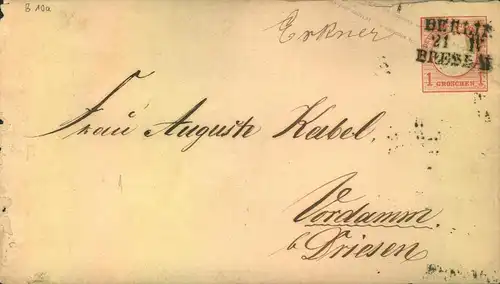 8 19a
Erkner
BERLIN
21 11
BRESLAU
1 GROSCHEN 1
Frau Auguste Kabel.
Vordamm.
b Driesen